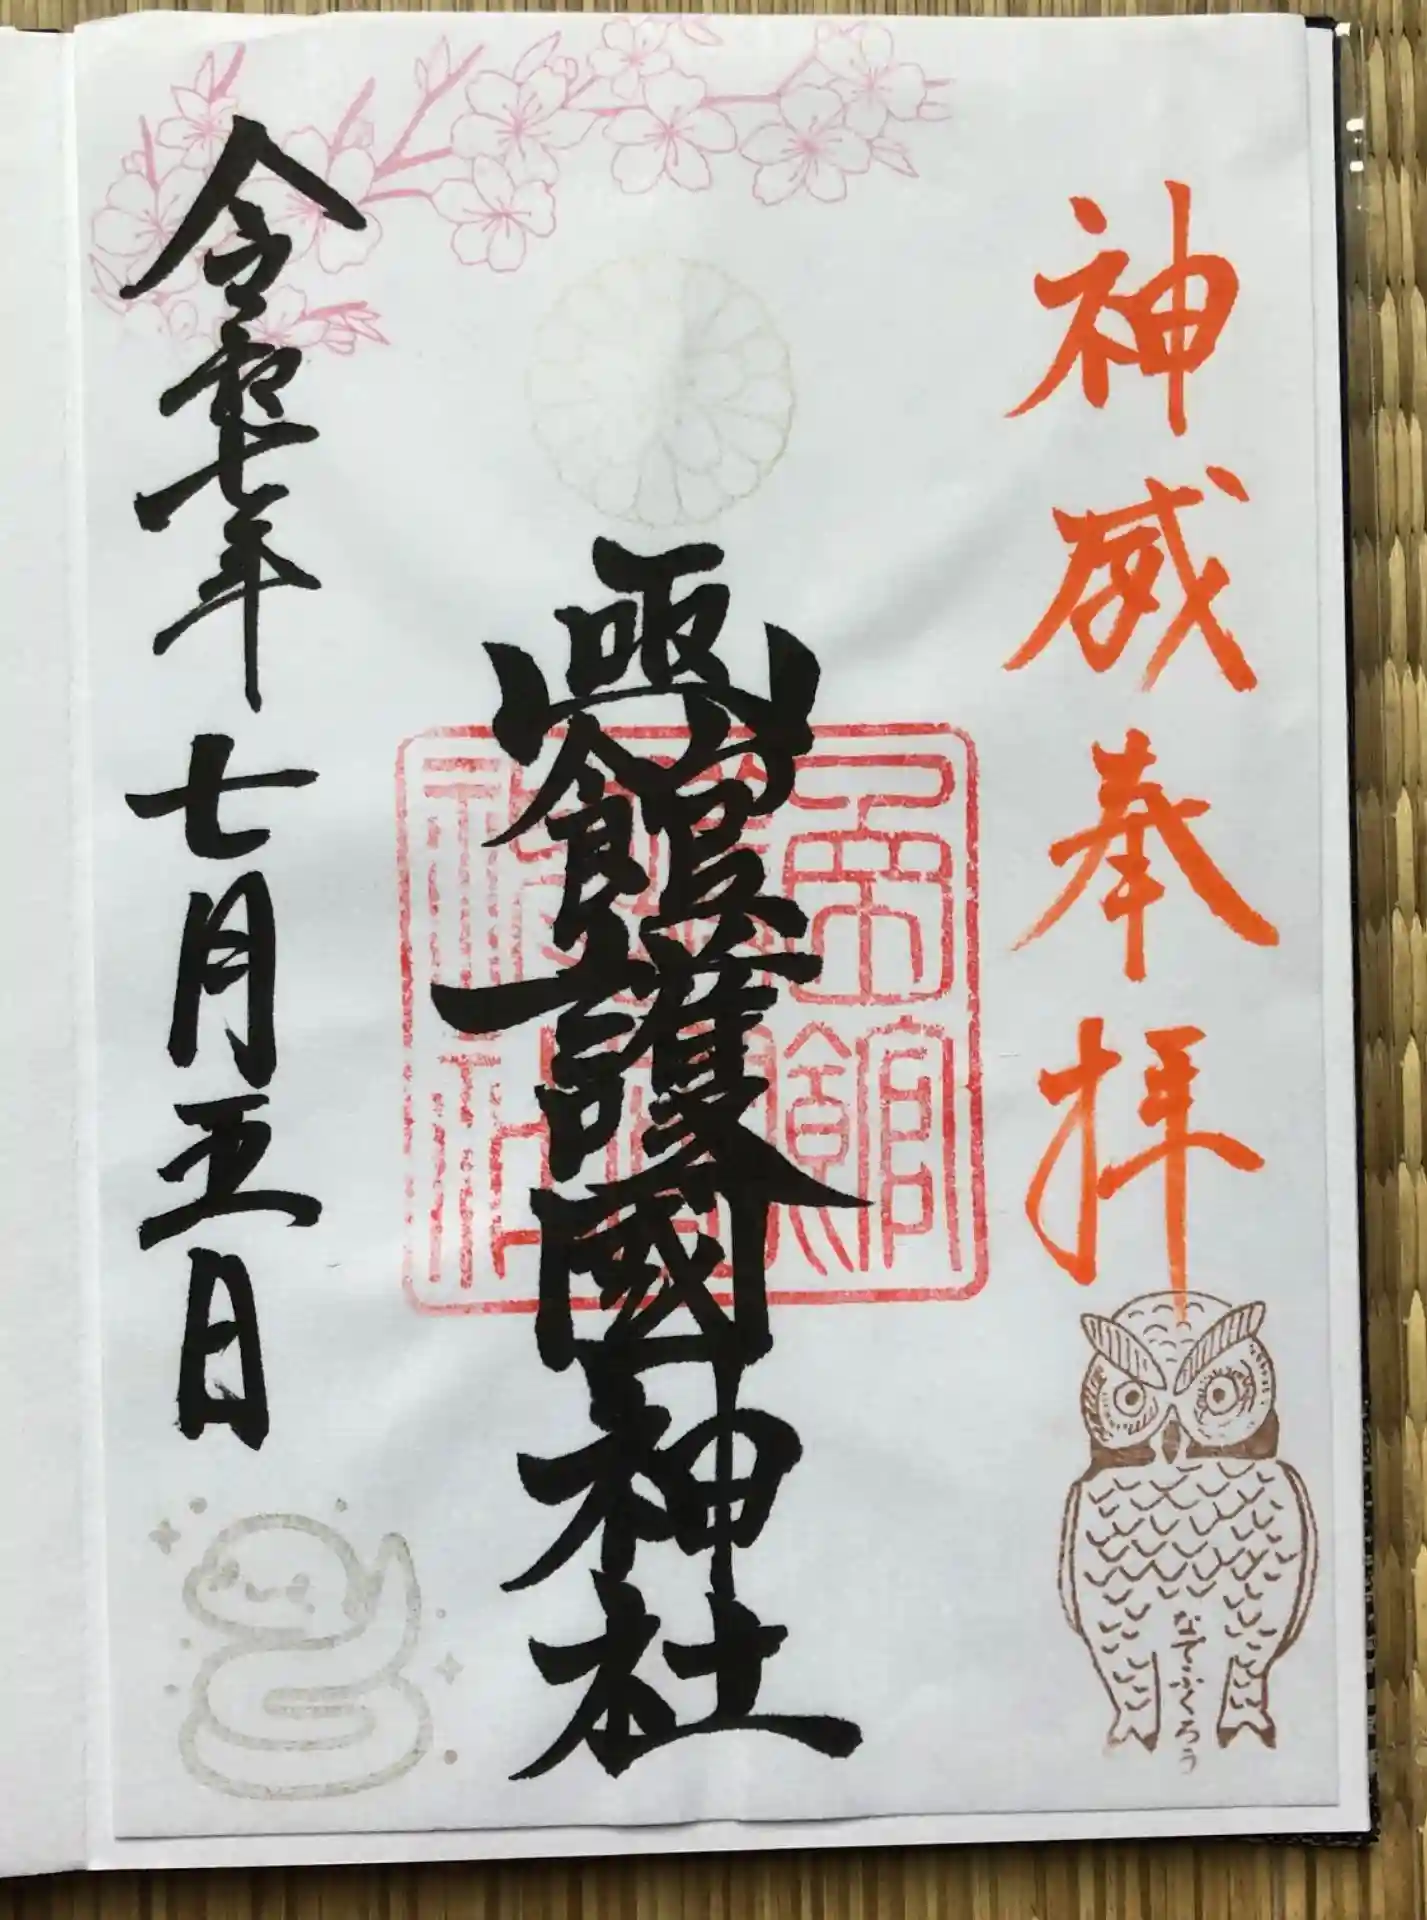 神威奉拝
函館護國神社
令和七年
七月五日
なでふくろう
函館
護國
神社